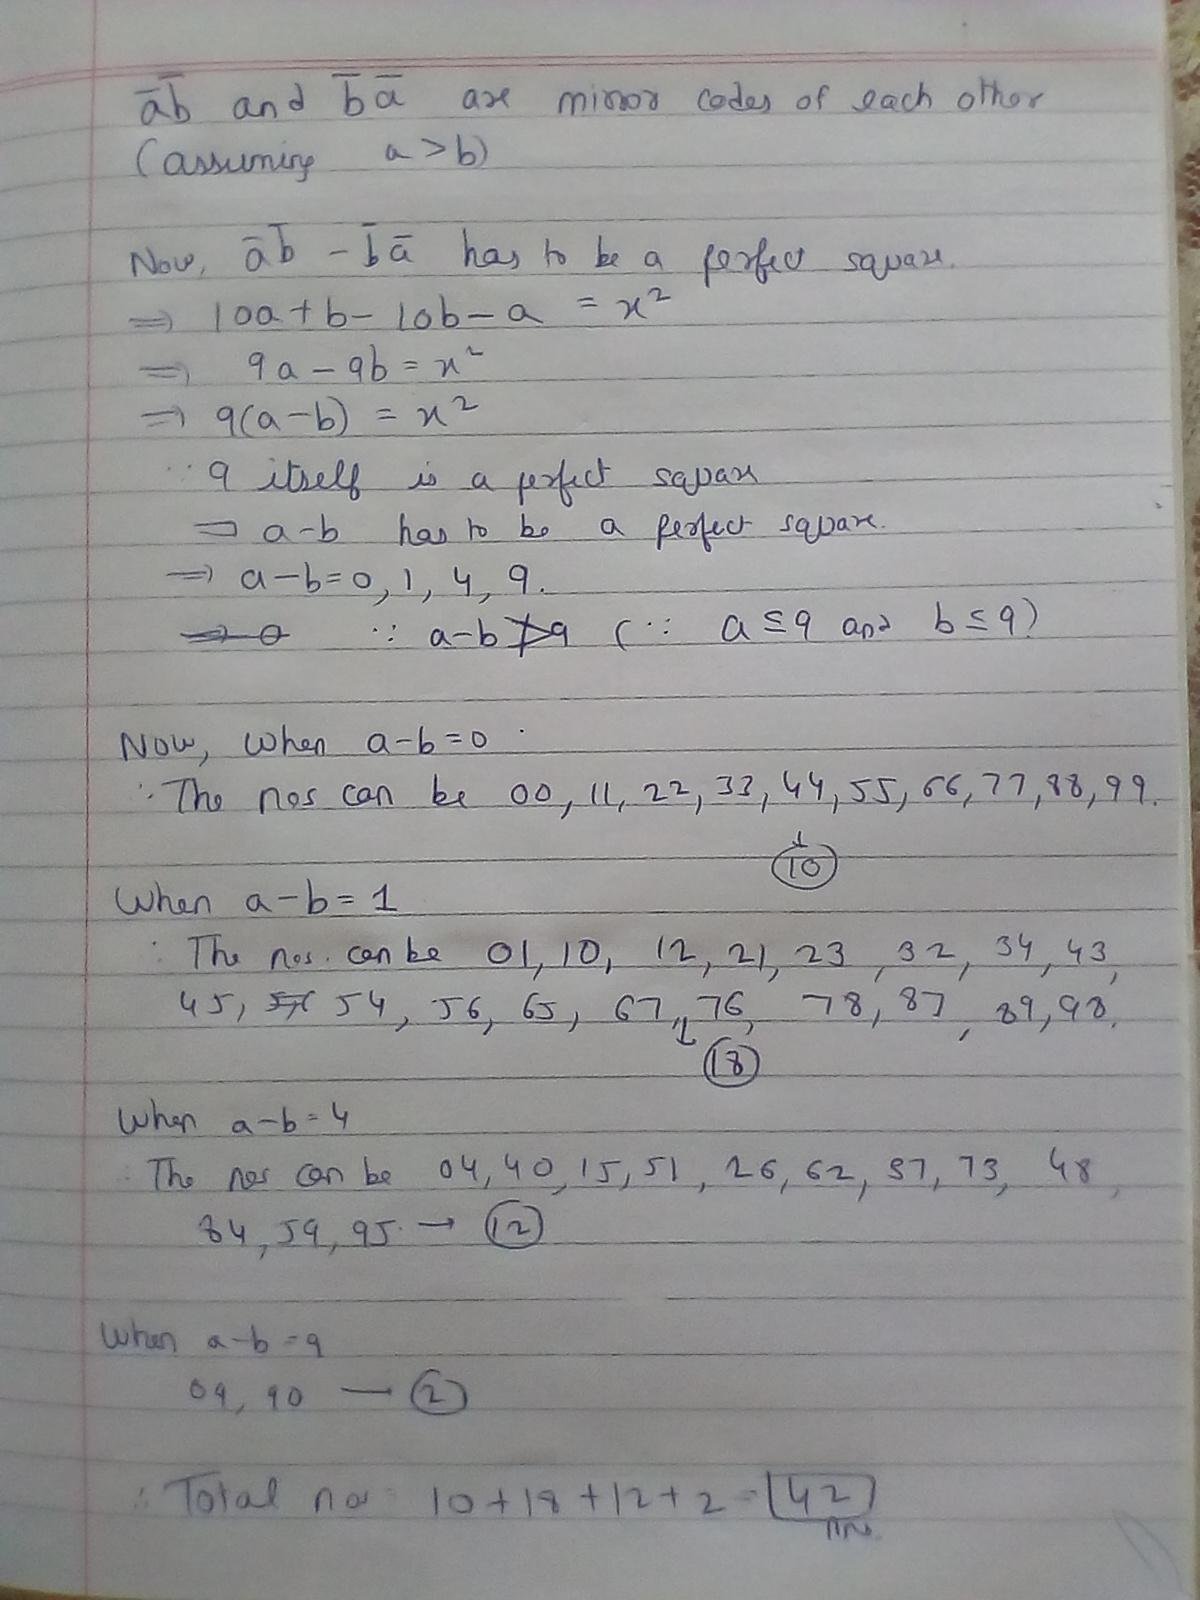 āb̄ and b̄ā are mirror codes of each other
(assuming a>b)
Now, āb̄ - b̄ā has to be a perfect square.
⇒ 10a+b-10b-a = x²
⇒ 9a-9b = x²
⇒ 9(a-b) = x²
∵ 9 itself is a perfect square
⇒ a-b has to be a perfect square.
⇒ a-b=0, 1, 4, 9.
∵ a-b≯9 (∵ a≤9 and b≤9)
Now, When a-b=0
∴ The nos can be 00, 11, 22, 33, 44, 55, 66, 77, 88, 99.
↓
10
When a-b=1
∴ The nos. can be 01, 10, 12, 21, 23, 32, 34, 43,
45, 54, 56, 65, 67, 76, 78, 87, 89, 98.
↓
18
When a-b=4
∴ The nos can be 04, 40, 15, 51, 26, 62, 37, 73, 48,
84, 59, 95. → 12
When a-b=9
09, 90 — 2
∴ Total no = 10+18+12+2 = 42
Ans.